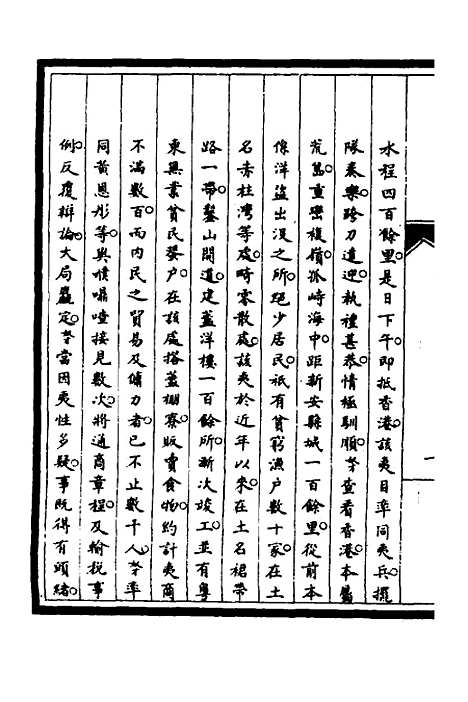 水程四百餘里是日下午即抵香港該夷目率同夷兵擺
隊奏樂跨刀道迎執禮甚恭情極馴順等查看香港本屬
荒島重巒複嶺孤峙海中距新安縣城一百餘里從前本
係洋盜出沒之所絕少居民祇有貧窮漁戶數十家在土
名赤柱灣等處畸零散處該夷於近年以來在土名裙帶
路一帶鑿山開道建蓋洋樓一百餘所漸次竣工並有粵
東無業貧民蜑戶在該處搭蓋棚寮販賣食物約計夷商
不滿數百而內民之貿易及傭力者已不止數千人等率
同黃恩彤等與噗嚙喳接見數次將通商章程及輸稅事
例反覆辯論大局粗定等當因夷性多疑事既得有頭緒
一